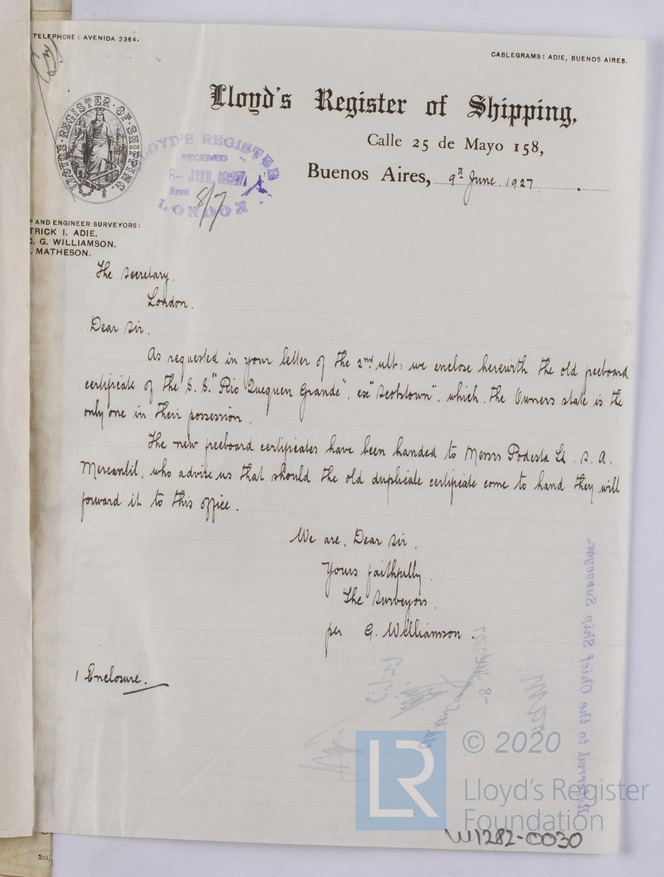 TELEPHONE: AVENIDA 2364.
CABLEGRAMS: ADIE, BUENOS AIRES.
Lloyd's Register of Shipping,
Calle 25 de Mayo 158,
Buenos Aires, 9th June. 1927.
LLOYD'S REGISTER OF SHIPPING
LLOYD'S REGISTER
RECEIVED
8- JUL 1927
8/7
LONDON
AND ENGINEER SURVEYORS:
TRICK I. ADIE.
G. WILLIAMSON.
MATHESON.
The Secretary.
London.
Dear Sir.
As requested in your letter of the 2nd ult: we enclose herewith the old freeboard
certificate of the S.S. "Rio Quequen Grande", ex "Scotstown", which the Owners state is the
only one in their possession.
The new freeboard certificates have been handed to Messrs Podesta Li. S. A.
Mercantil, who advise us that should the old duplicate certificate come to hand they will
forward it to this office.
We are, Dear Sir.
Yours faithfully.
The Surveyors.
per G. Williamson
1 Enclosure.
Referred to the Chief Ship Surveyor.
LR
© 2020
Lloyd's Register
Foundation
W1282-0030